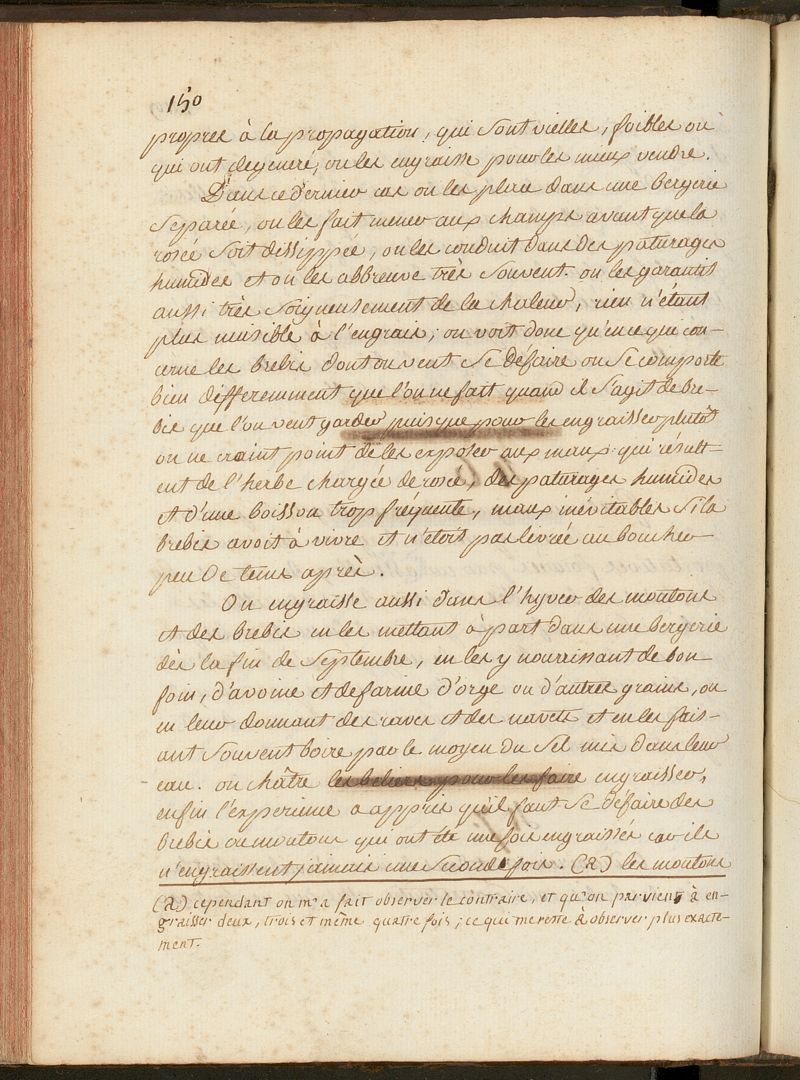 150
propres à la propagation, qui sont vielles, foibles ou
qui ont degeneré, on les engraisse pour les mieux vendre.
Dans ce dernier cas on les place dans une bergerie
separée, on les fait mener aux champs avant que la
rosée soit dissippée, on les conduit dans des paturages
humides et on les abbreuve très souvent. on les garantit
aussi très soigneusement de la chaleur, rien n'étant
plus nuisible à l'engrais; on voit donc qu'en ce que con-
cerne les brebis dont on veut se défaire on se comporte
bien differemment que l'on ne fait quand il s'agit de bre-
bis que l'on veut garder puisque pour les engraisser plutôt
on ne craint point de les exposer aux maux qui résult-
ent de l'herbe chargée de rosée, des paturages humides
et d'une boisson trop fréquente, maux inévitables si la
brebis avoit à vivre et n'étoit pas livrée au boucher
peu de tems après.
On engraisse aussi dans l'hyver des moutons
et des brebis en les mettant à part dans une bergerie
dès la fin de Septembre, en les y nourrissant de bon
foin, d'avoine et de farine d'orge ou d'autres grains, ou
en leur donnant des raves et des navets et en les fais-
ant souvent boire par le moyen du sel mis dans leur
eau. on châtre les beliers pour les faire engraisser,
enfin l'experience a appris qu'il faut se défaire des
brebis ou moutons qui ont été une fois engraissés car ils
n'engraissent jamais une seconde fois. (a) les moutons
(a) cependant on m'a fait observer le contraire, et qu'on parvient à en-
graisser deux, trois et même quatre fois; ce qui me reste à observer plus exacte-
ment.